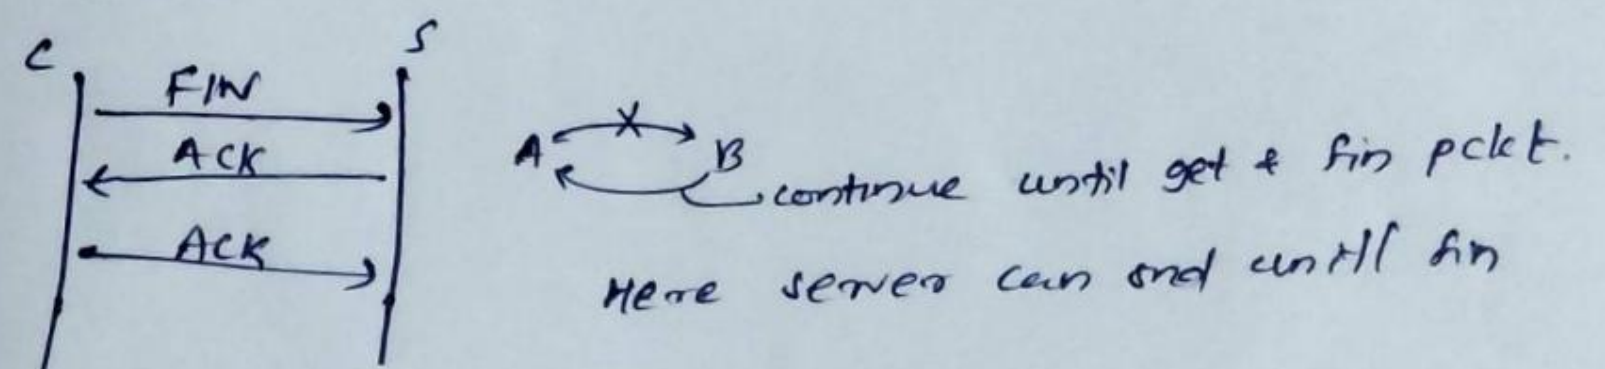 C S
FIN
ACK
ACK
A B
continue until get & fin pckt.
Here server can snd untill fin